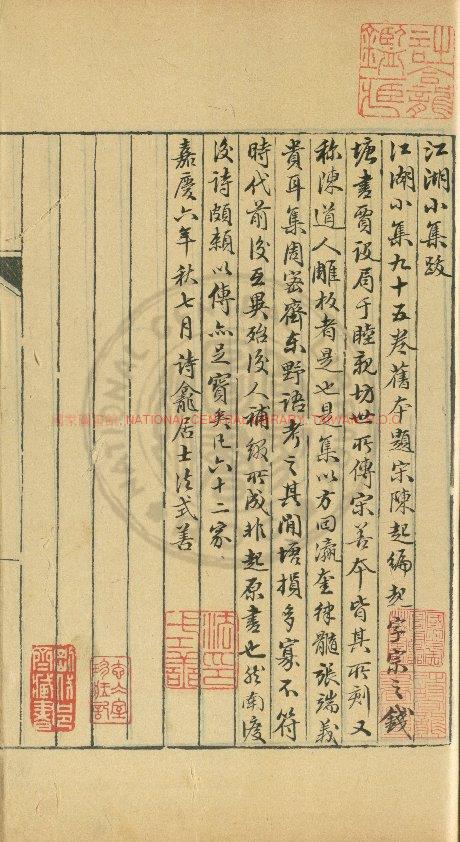 江湖小集跋
江湖小集九十五卷舊本題宋陳起編起字宗之錢
塘書賈設局于睦親坊世所傳宋善本皆其所刻又
称陳道人雕板者是也是集以方回瀛奎律髓張端義
貴耳集周密齊東野語考之其間增損多寡不符
時代前後互異殆後人補綴所成非起原書也然南渡
後詩頗賴以傳亦足寶矣凡六十二家
嘉慶六年秋七月詩龕居士法式善
詩龕鑑藏
國家圖書館 NATIONAL CENTRAL LIBRARY, TAIWAN R.O.C